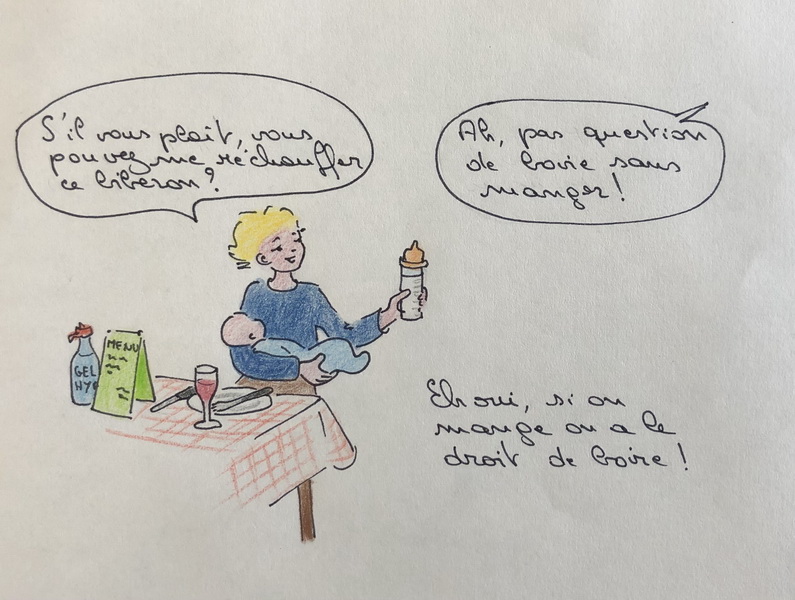 S'il vous plait, vous
pouvez me réchauffer
ce biberon?
Ah, pas question
de boire sans
manger!
MENU
GEL
HYD
Eh oui, si on
mange on a le
droit de boire!